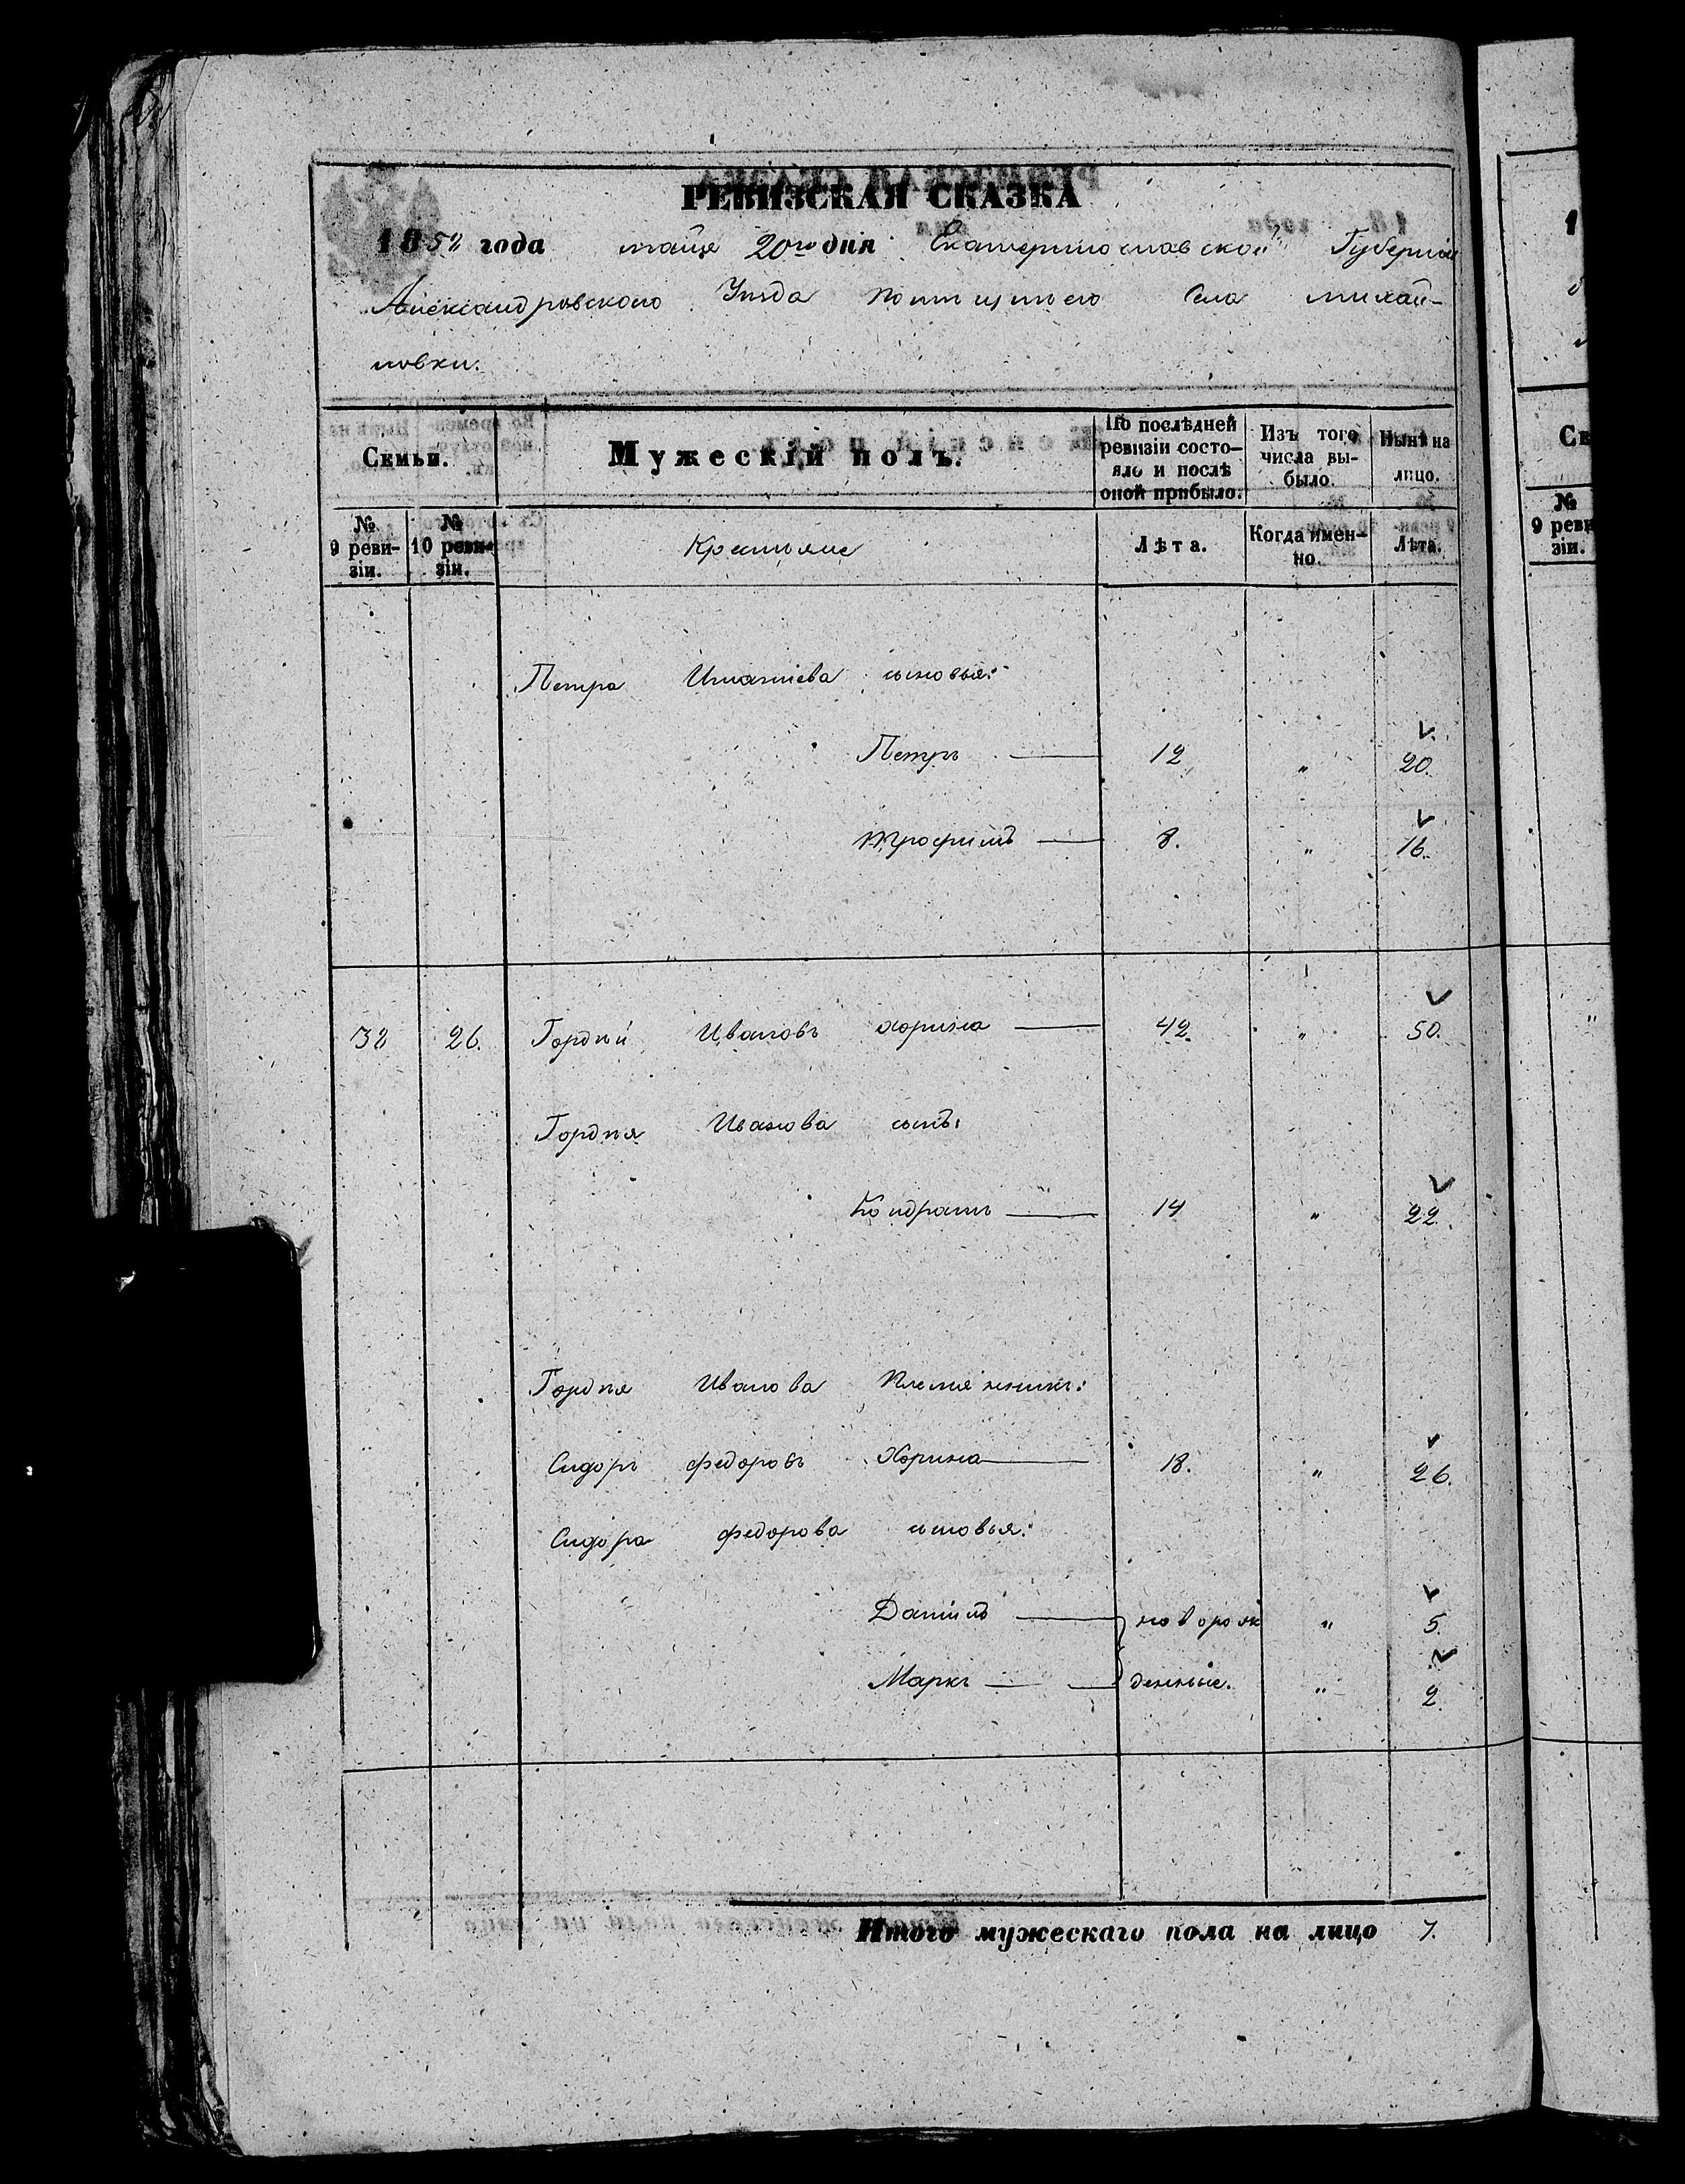 РЕВИЗСКАЯ СКАЗКА
1858 года мая 20го дня Екатеринославской Губерніи
Александровскаго Уезда Села Михай-
ловки.
Семьи. Мужескій полъ. По послѣдней ревизіи состо-яло и послѣ оной прибыло. Изъ того числа вы-было. Нынѣ на лицо.
№ 9 реви-зіи. № 10 реви-зіи. Крестьяне Лѣта. Когда имен-но. Лѣта.
Петра Игнатіева сыновья:
Петръ 12 „ 20.
Трофимъ 8. „ 16.
32 26. Гордѣй Ивановъ Хорина 42. „ 50.
Гордѣя Иванова сынъ:
Кондратъ 14 „ 22.
Гордѣя Иванова Племянникъ:
Сидоръ Федоровъ Хорина 18. „ 26.
Сидора Федорова сыновья:
Даніилъ новорож „ 5.
Маркъ денные. „ 2.
Итого мужескаго пола на лицо 7.
Се
№ 9 реви зіи.